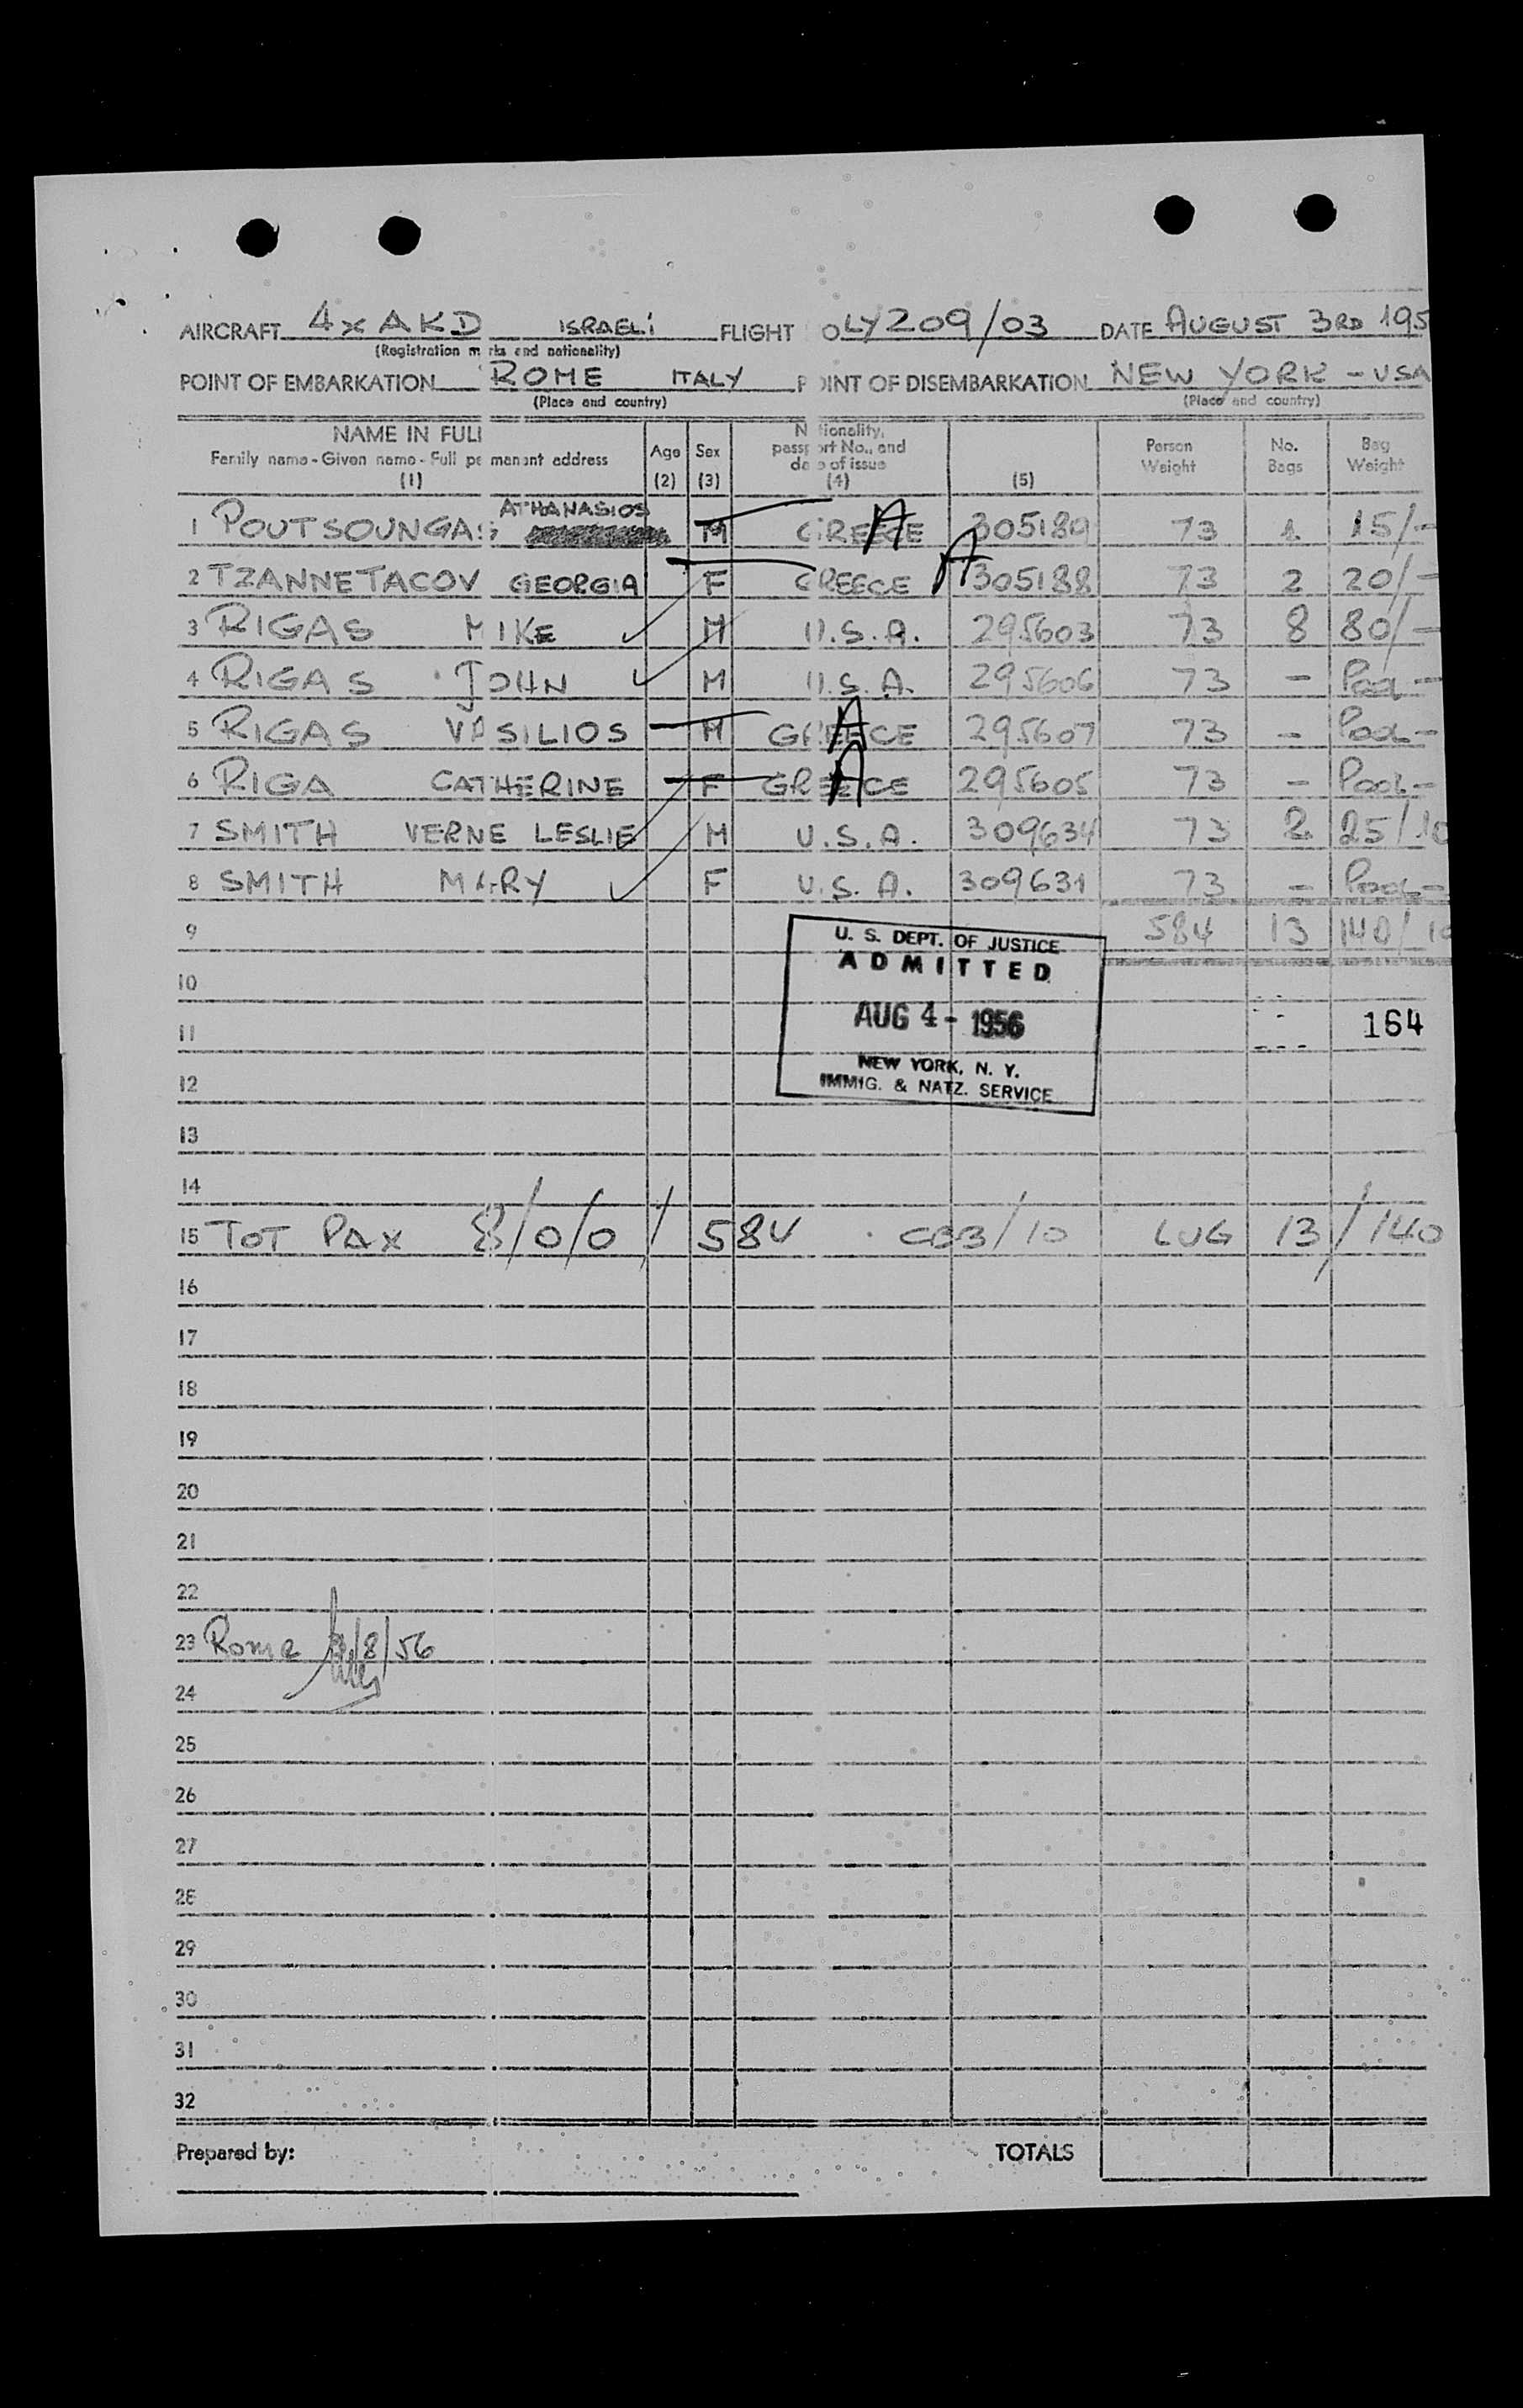 AIRCRAFT 4xAKD ISRAELI FLIGHT O LY209/03 DATE AUGUST 3RD 195
(Registration marks and nationality)
POINT OF EMBARKATION ROME ITALY POINT OF DISEMBARKATION NEW YORK - USA
(Place and country) (Place and country)
NAME IN FULL
Family name - Given name - Full permanent address
(1)
Age
(2)
Sex
(3)
Nationality,
passport No., and
date of issue
(4)
(5)
Person
Weight
No.
Bags
Bag
Weight
ATHANASIOS
1 POUTSOUNGAS M GREECE A 305189 73 1 15/-
2 TZANNETACOV GEORGIA F GREECE A 305188 73 2 20/-
3 RIGAS MIKE M U.S.A. 295603 73 8 80/-
4 RIGAS JOHN M U.S.A. 295606 73 - Pool-
5 RIGAS VASILIOS M GREECE A 295607 73 - Pool-
6 RIGA CATHERINE F GREECE A 295605 73 - Pool-
7 SMITH VERNE LESLIE M U.S.A. 309634 73 2 25/10
8 SMITH MARY F U.S.A. 309631 73 - Pool-
9 584 13 140/10
U. S. DEPT. OF JUSTICE
ADMITTED
AUG 4 - 1956
NEW YORK, N. Y.
IMMIG. & NATZ. SERVICE
10
11 164
12
13
14
15 TOT PAX 8/0/0/584 CB3/10 LUG 13/140
16
17
18
19
20
21
22
23 Rome 3/8/56
24
25
26
27
28
29
30
31
32
Prepared by: TOTALS